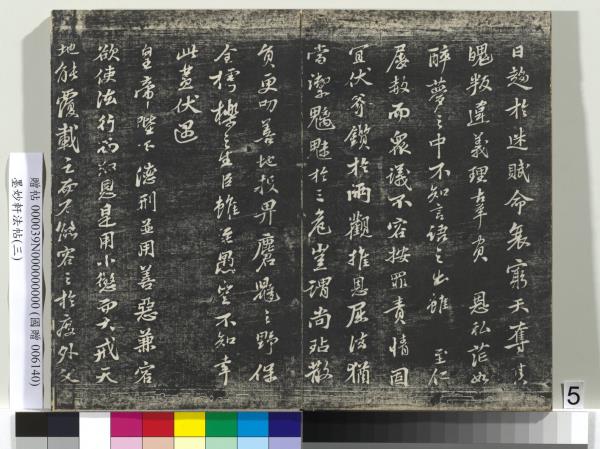 日趨於迷賦命衰窮天奪其
魄叛違義理辜負 恩私茫如
醉夢之中不知言語之出雖 至仁
屢赦而眾議不容按罪責情固
宜伏斧鑕於兩觀推恩屈法猶
當禦魑魅於三危豈謂尚玷散
員更叨善地投畀麏鼯之野保
全樗櫟之生臣雖至愚豈不知幸
此蓋伏遇
皇帝陛下德刑並用善惡兼容
欲使法行而知恩是用小懲而大戒天
地能覆載之而不能容之於度外父
贈帖 0000039N000000000 (國贈 006140)
墨妙軒法帖(三)
5